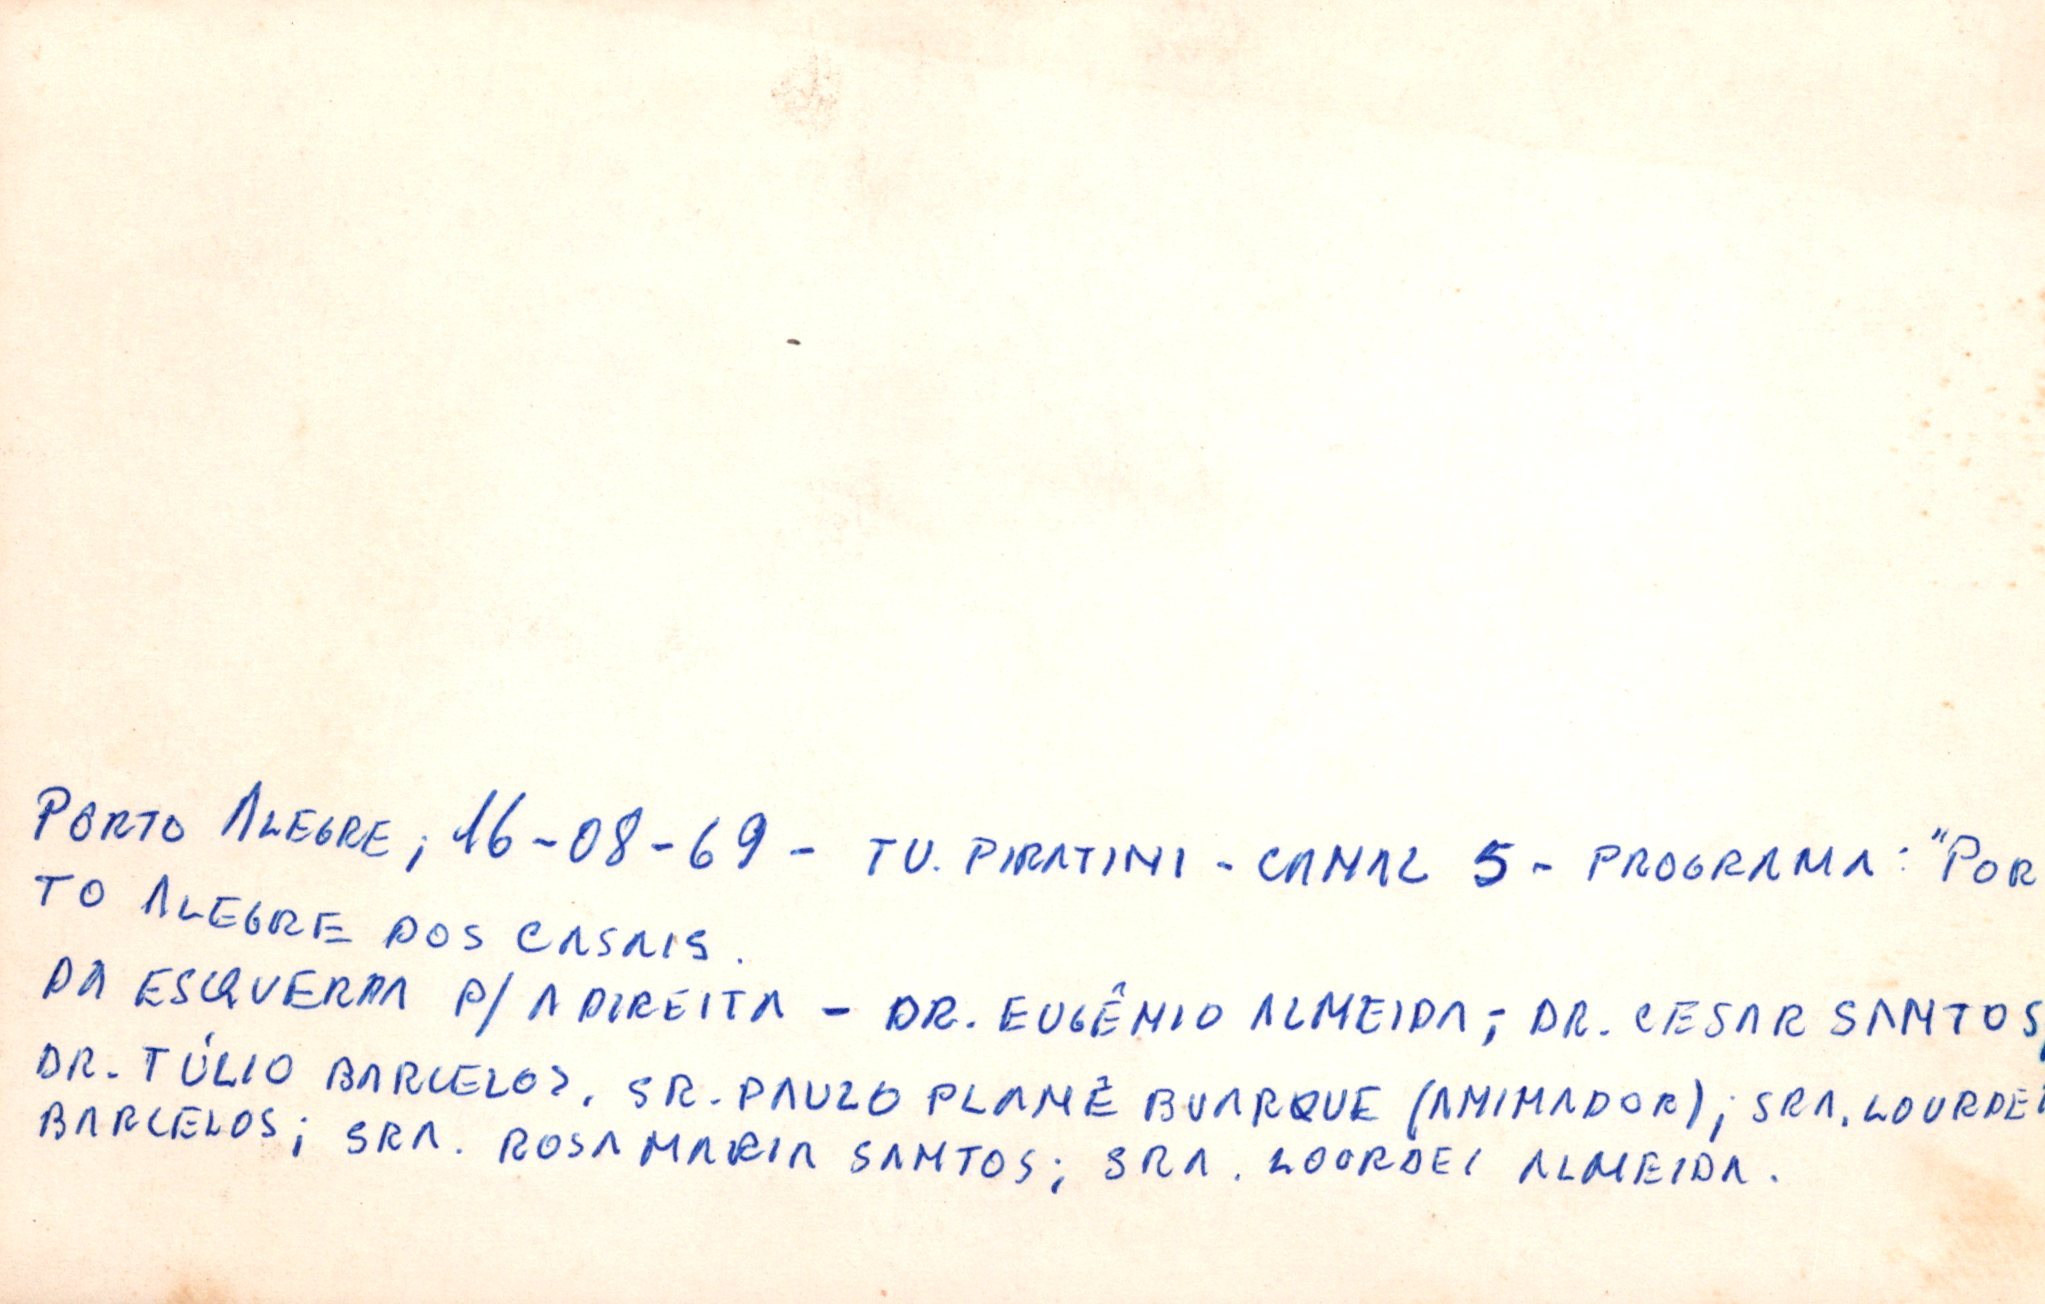 PORTO ALEGRE, 16-08-69 - TV. PIRATINI - CANAL 5 - PROGRAMA: "POR
TO ALEGRE DOS CASAIS.
DA ESQUERDA P/ A DIREITA - DR. EUGÊNIO ALMEIDA; DR. CESAR SANTOS,
DR. TÚLIO BARCELOS, SR. PAULO PLANÊ BUARQUE (ANIMADOR); SRA. LOURDES
BARCELOS; SRA. ROSA MARIA SANTOS; SRA. LOURDES ALMEIDA.